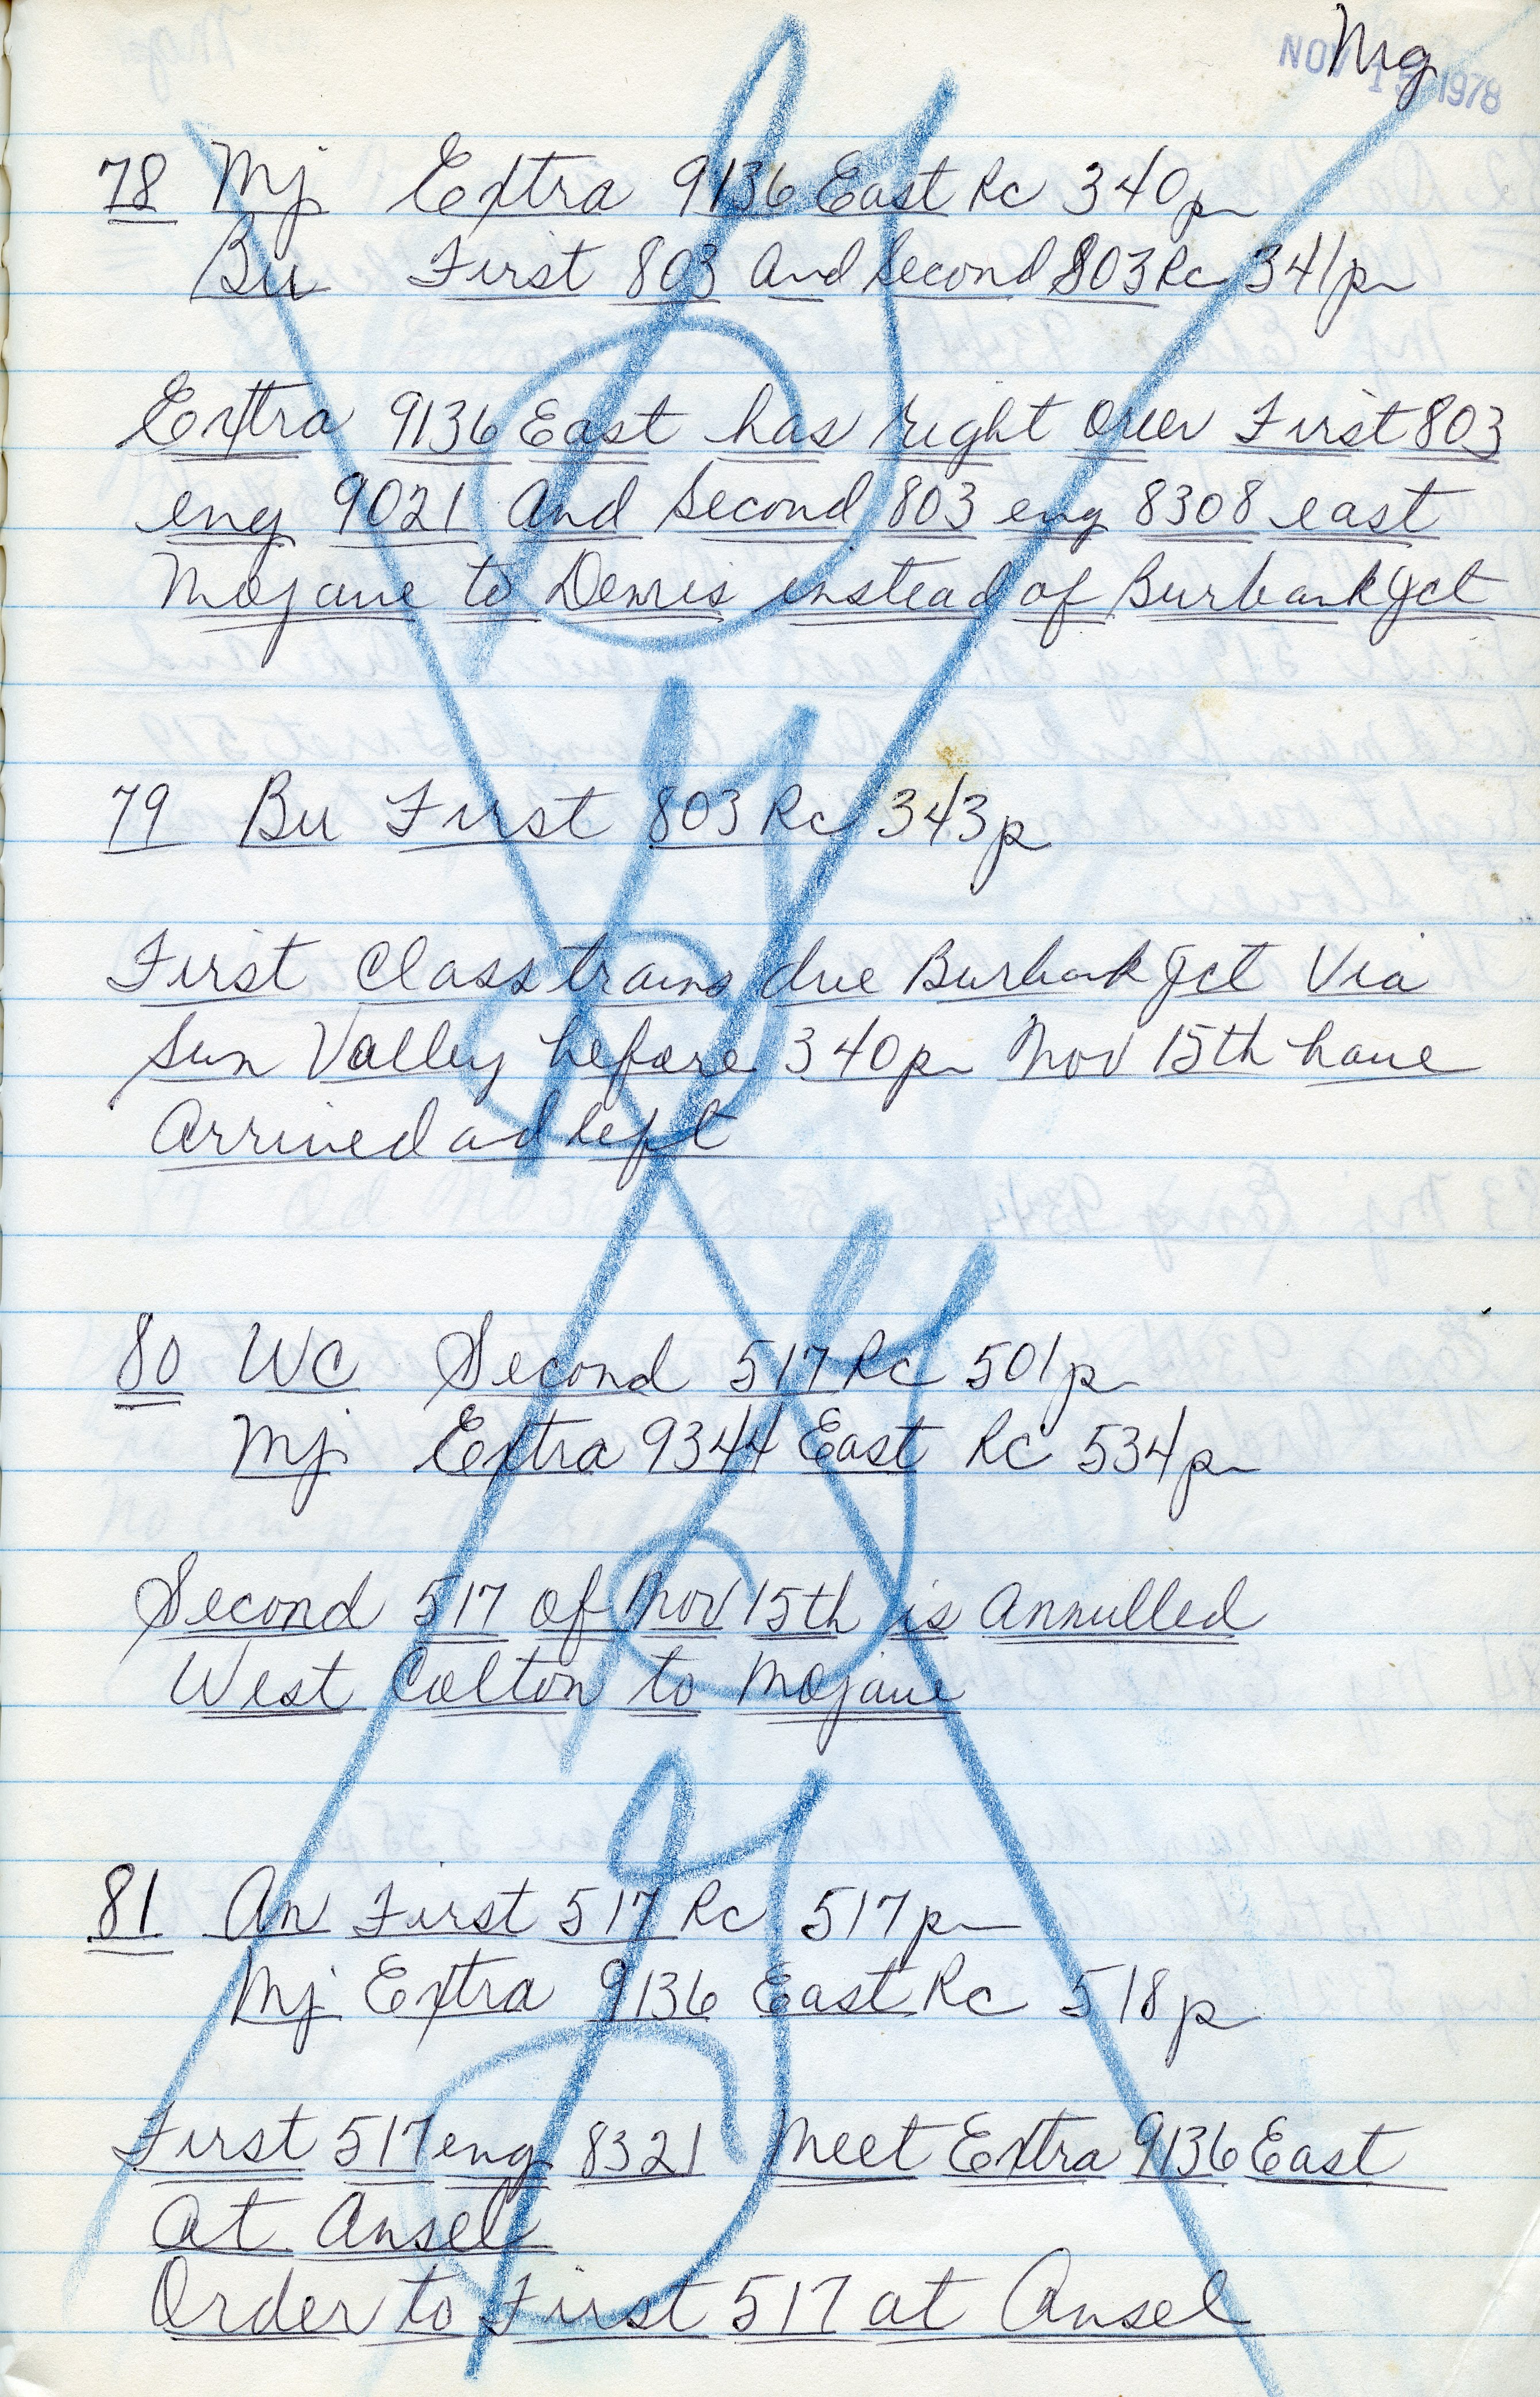 Mrg
NOV 15 1978
78 Mj Extra 9136 East Rc 340p
Bu First 803 and Second 803 Rc 341p
Extra 9136 East has right over First 803
eng 9021 and Second 803 eng 8308 east
Mojave to Denis instead of Burbank Jct
79 Bu First 803 Rc 343p
First Class trains due Burbank Jct Via
Sun Valley before 340p Nov 15th have
Arrived and left
80 WC Second 517 Rc 501p
Mj Extra 9344 East Rc 534p
Second 517 of Nov 15th is Annulled
West Colton to Mojave
81 An First 517 Rc 517p
Mj Extra 9136 East Rc 518p
First 517 eng 8321 Meet Extra 9136 East
At Ansel
Order to First 517 at Ansel